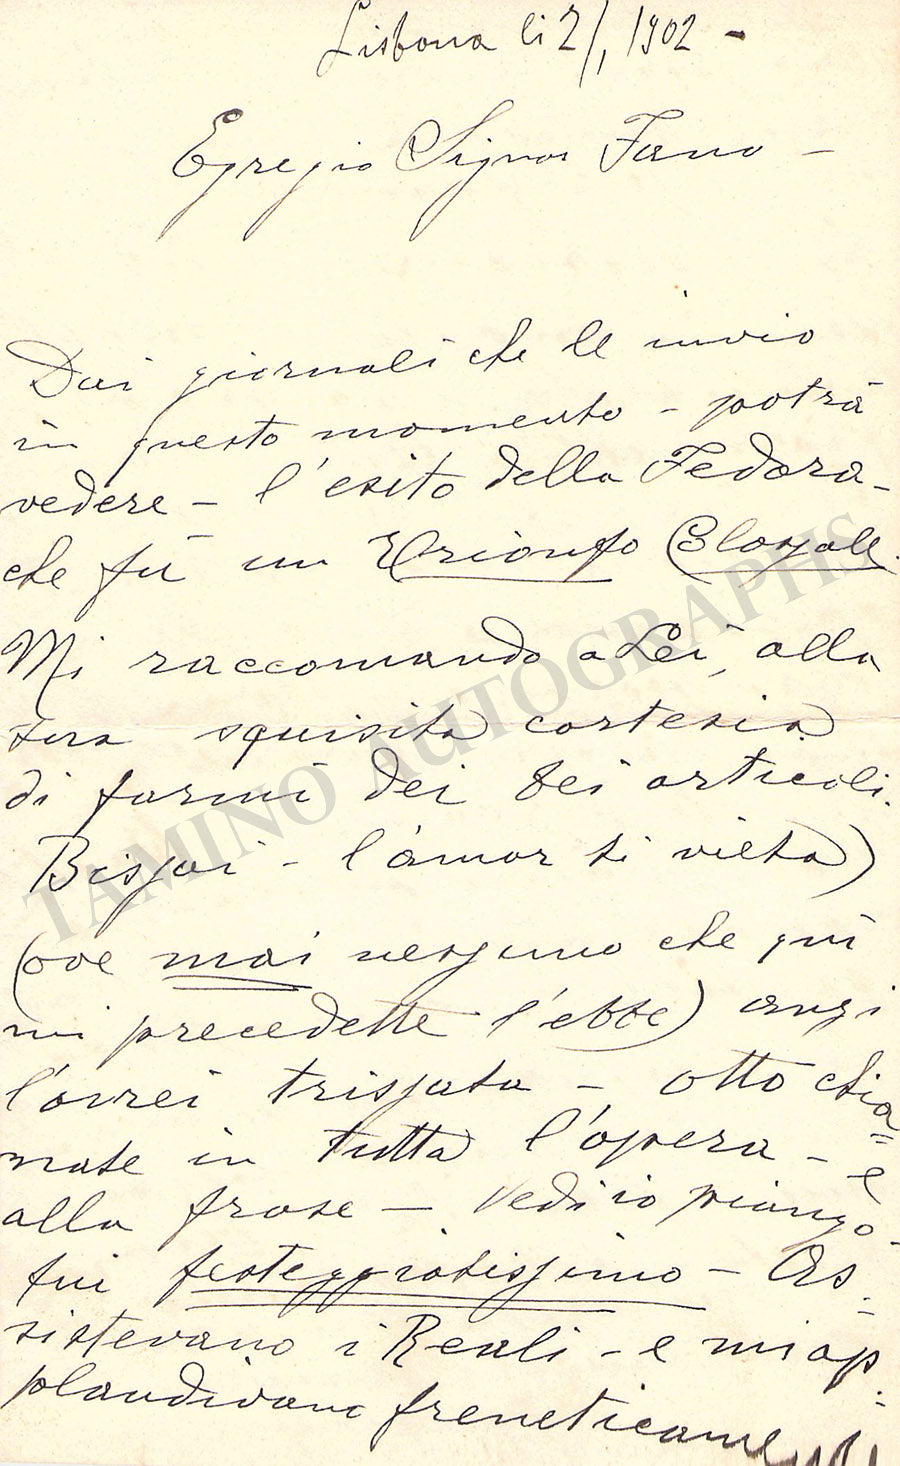 Lisbona li 2/1, 1902 -
Egregio Signor Fano -
Dai giornali che le invio
in questo momento - potrà
vedere - l'esito della Fedora -
che fù un Trionfo Colossale.
Mi raccomando a Lei, alla
sua squisita cortesia
di farmi dei bei articoli.
Bissai - l'amor ti vieta)
(ove mai nessuno che quì
mi precedette l'ebbe) anzi
l'avrei trissata - otto chia=
mate in tutta l'opera - e
alla frase - Vedi io piango
fui festeggiatissimo - As=
sistevano i Reali - e mi ap=
plaudivano freneticame
TAMINO AUTOGRAPHS